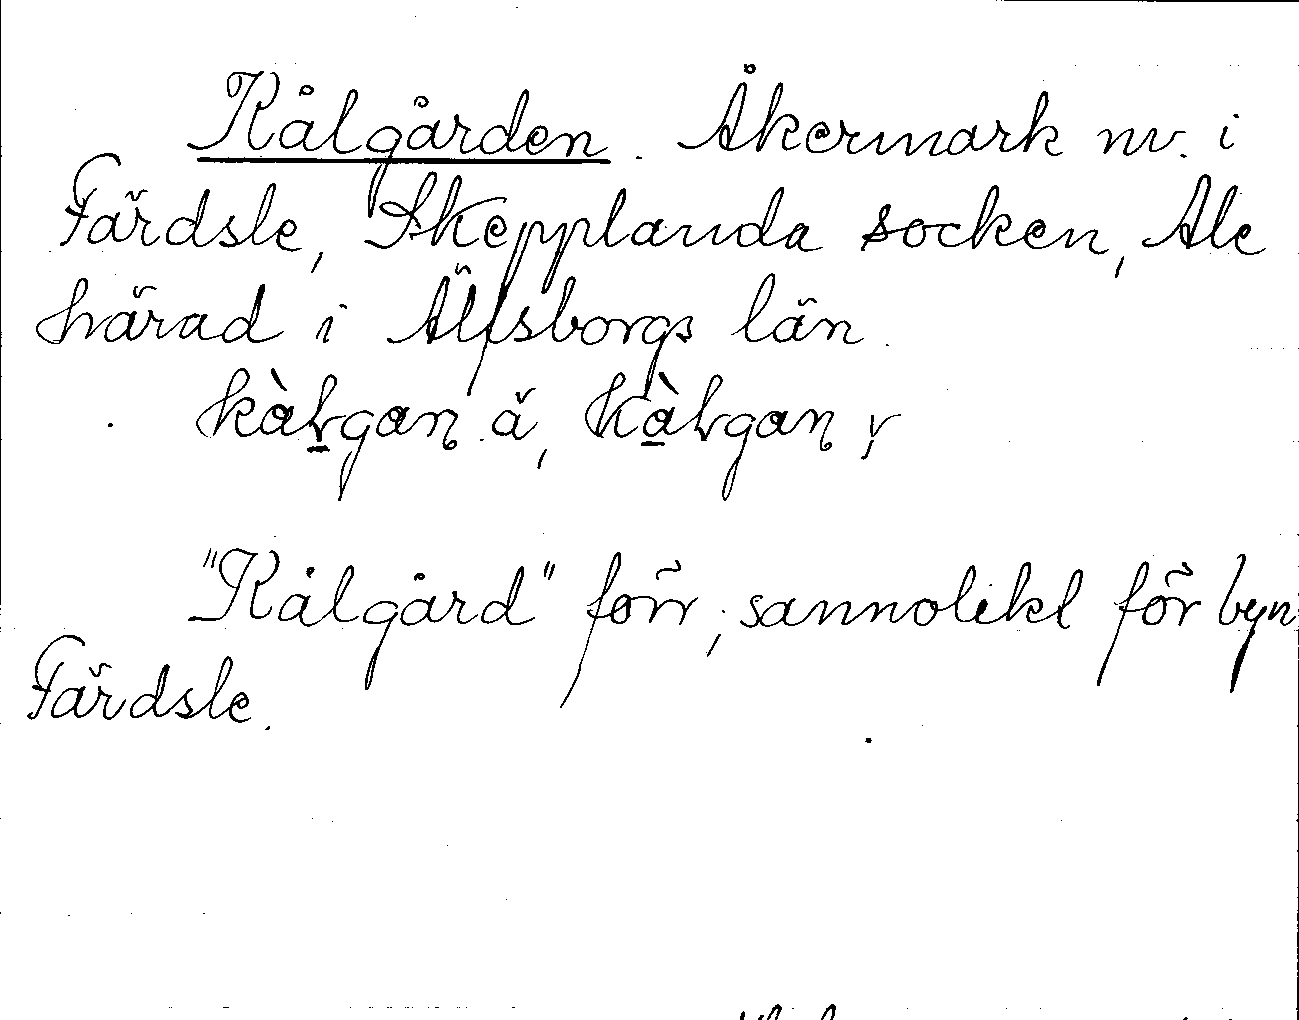 Kålgården. Åkermark nv. i
Färdsle, Skepplanda socken, Ale
härad i Älfsborgs län.
"Kålgård" förr, sannolikt för byn
Färdsle.